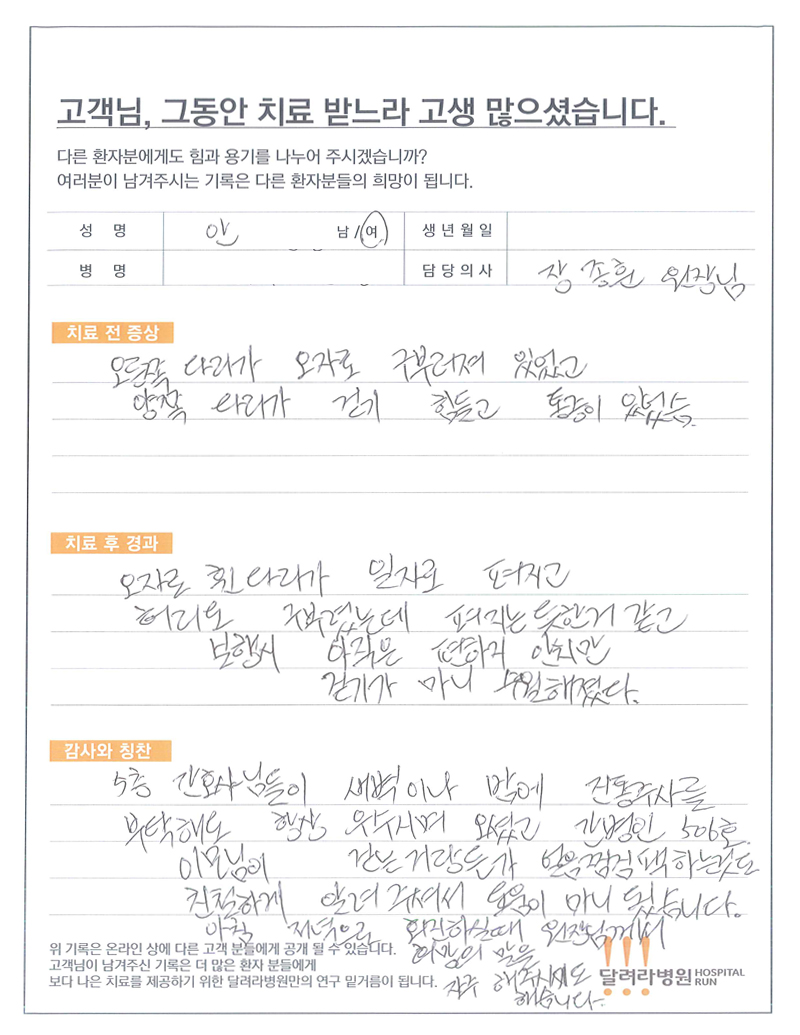 고객님, 그동안 치료 받느라 고생 많으셨습니다.
다른 환자분에게도 힘과 용기를 나누어 주시겠습니까?
여러분이 남겨주시는 기록은 다른 환자분들의 희망이 됩니다.
성 명 안 남 / 여 생년월일
병 명 담당의사 장종훈 원장님
치료 전 증상
오른쪽 다리가 오자로 구부러져 있었고
양쪽 다리가 걷기 힘들고 통증이 있었슴.
치료 후 경과
오자로 휜 다리가 일자로 펴지고
허리도 구부렸는데 펴지는 듯한거 같고
보행시 아직은 편하지 안치만
걷기가 마니 수월해졌다.
감사와 칭찬
5층 간호사님들이 새벽이나 밤에 진통주사를
부탁해도 항상 웃으시며 와줬고 간병인 506호
이모님이 걷는거랑 든가 얼음찜질팩 하는것도
친절하게 알려주셔서 도움이 마니 됐습니다.
아침 저녁으로 회진하실때 원장님께서
희망의 말을
자주 해주시기도
했습니다.
위 기록은 온라인 상에 다른 고객 분들에게 공개 될 수 있습니다.
고객님이 남겨주신 기록은 더 많은 환자 분들에게
보다 나은 치료를 제공하기 위한 달려라병원만의 연구 밑거름이 됩니다.
달려라병원 HOSPITAL RUN